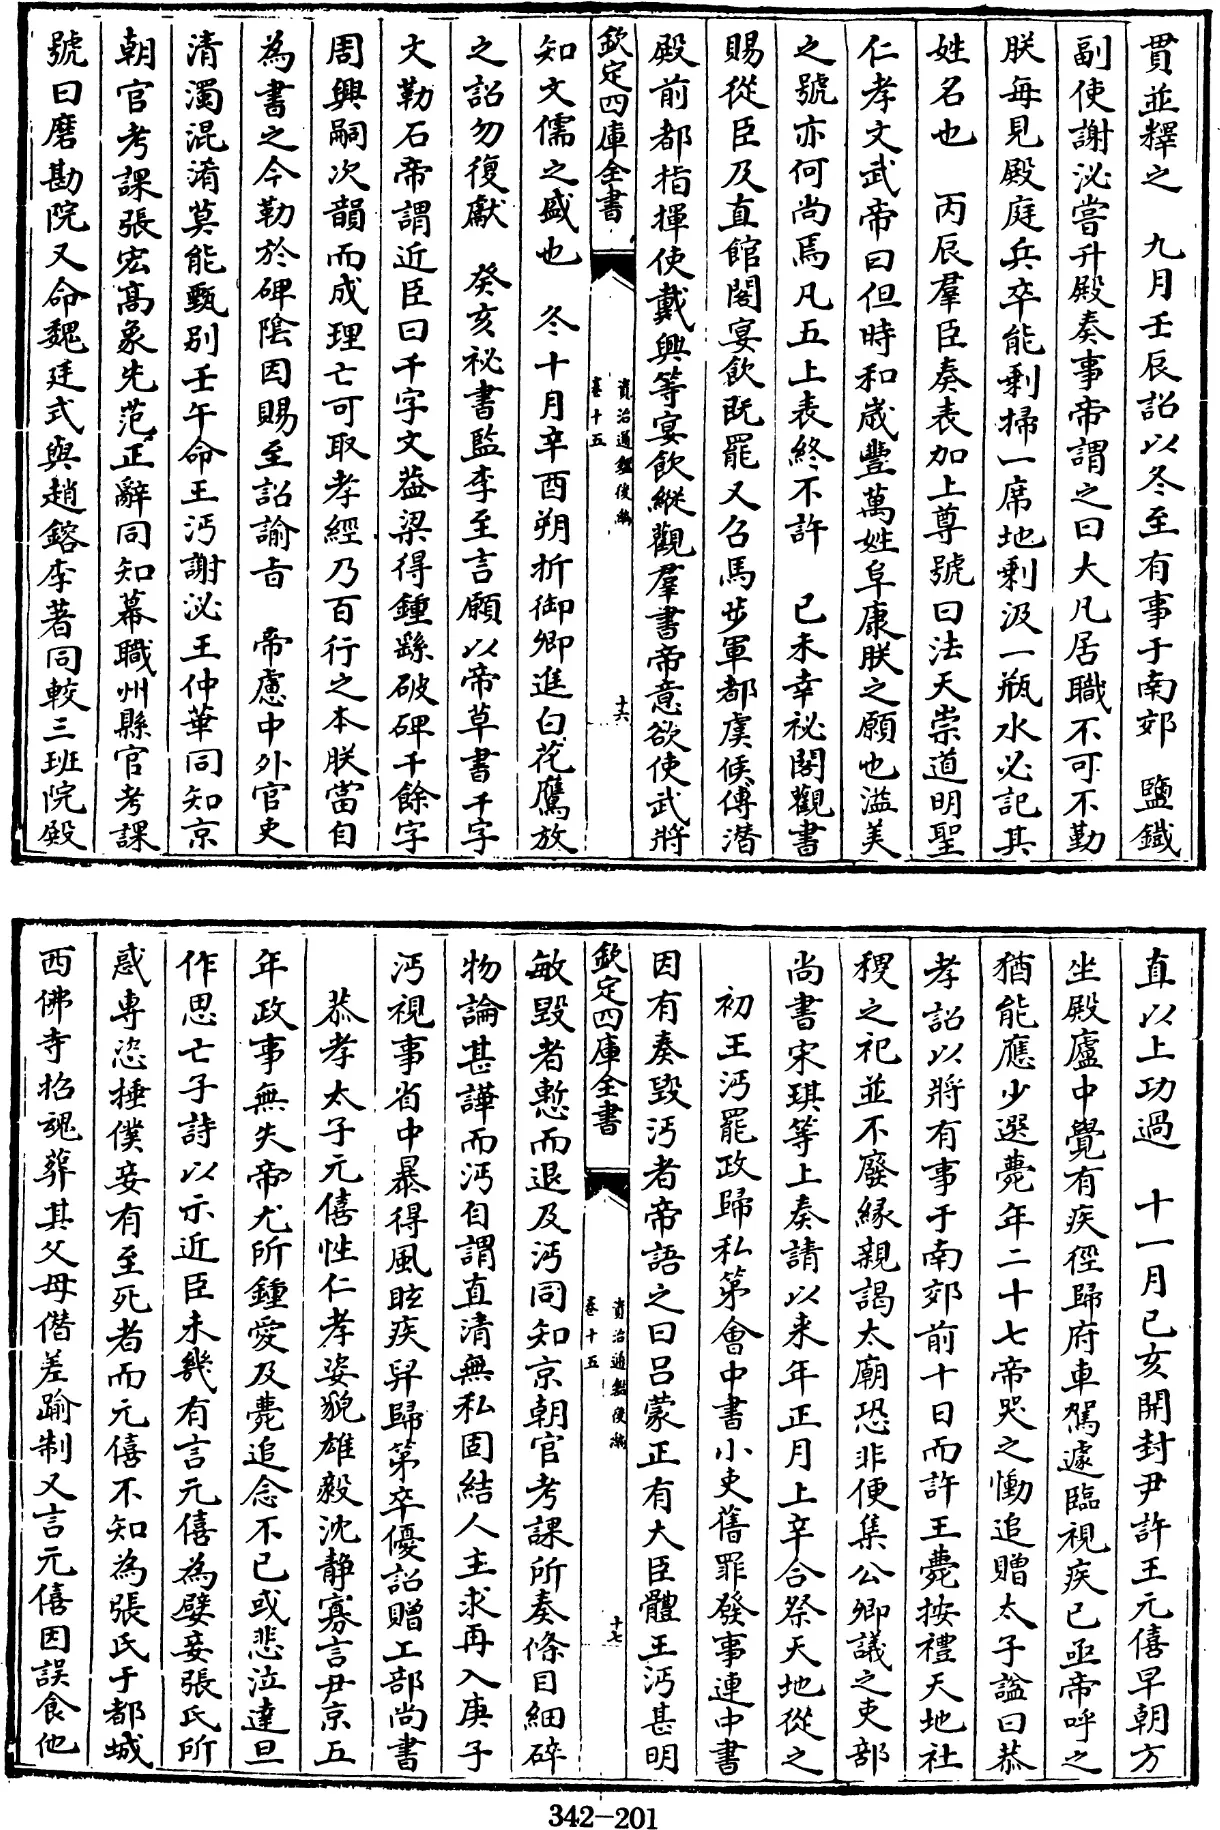 貫並釋之　九月壬辰詔以冬至有事于南郊　鹽鐵
副使謝泌嘗升殿奏事帝謂之曰大凡居職不可不勤
朕每見殿庭兵卒能剩掃一席地剩汲一瓶水必記其
姓名也　丙辰羣臣奏表加上尊號曰法天崇道明聖
仁孝文武帝曰但時和歲豐萬姓阜康朕之願也溢美
之號亦何尚焉凡五上表終不許　已未幸祕閣觀書
賜從臣及直館閣宴飲既罷又召馬步軍都虞候傅潛
殿前都指揮使戴興等宴飲縱觀羣書帝意欲使武將
欽定四庫全書
資治通鑑後編
卷十五
十六
知文儒之盛也　冬十月辛酉朔折御卿進白花鷹放
之詔勿復獻　癸亥祕書監李至言願以帝草書千字
文勒石帝謂近臣曰千字文蓋梁得鍾繇破碑千餘字
周興嗣次韻而成理亡可取孝經乃百行之本朕當自
為書之今勒於碑陰因賜至詔諭旨　帝慮中外官吏
清濁混淆莫能甄別壬午命王沔謝泌王仲華同知京
朝官考課張宏高象先范正辭同知幕職州縣官考課
號曰磨勘院又命魏廷式與趙鎔李著同較三班院殿
直以上功過　十一月已亥開封尹許王元僖早朝方
坐殿廬中覺有疾徑歸府車駕遽臨視疾已亟帝呼之
猶能應少選薨年二十七帝哭之慟追贈太子諡曰恭
孝詔以將有事于南郊前十日而許王薨按禮天地社
稷之祀並不廢緣親謁太廟恐非便集公卿議之吏部
尚書宋琪等上奏請以来年正月上辛合祭天地從之
初王沔罷政歸私第會中書小吏舊罪發事連中書
因有奏毀沔者帝語之曰呂蒙正有大臣體王沔甚明
欽定四庫全書
資治通鑑後編
卷十五
十七
敏毀者慙而退及沔同知京朝官考課所奏條目細碎
物論甚譁而沔自謂直清無私固結人主求再入庚子
沔視事省中暴得風眩疾舁歸第卒優詔贈工部尚書
恭孝太子元僖性仁孝姿貌雄毅沈静寡言尹京五
年政事無失帝尤所鍾愛及薨追念不已或悲泣達旦
作思亡子詩以示近臣未幾有言元僖為嬖妾張氏所
惑專恣捶僕妾有至死者而元僖不知為張氏于都城
西佛寺招魂葬其父母僭差踰制又言元僖因誤食他
342-201